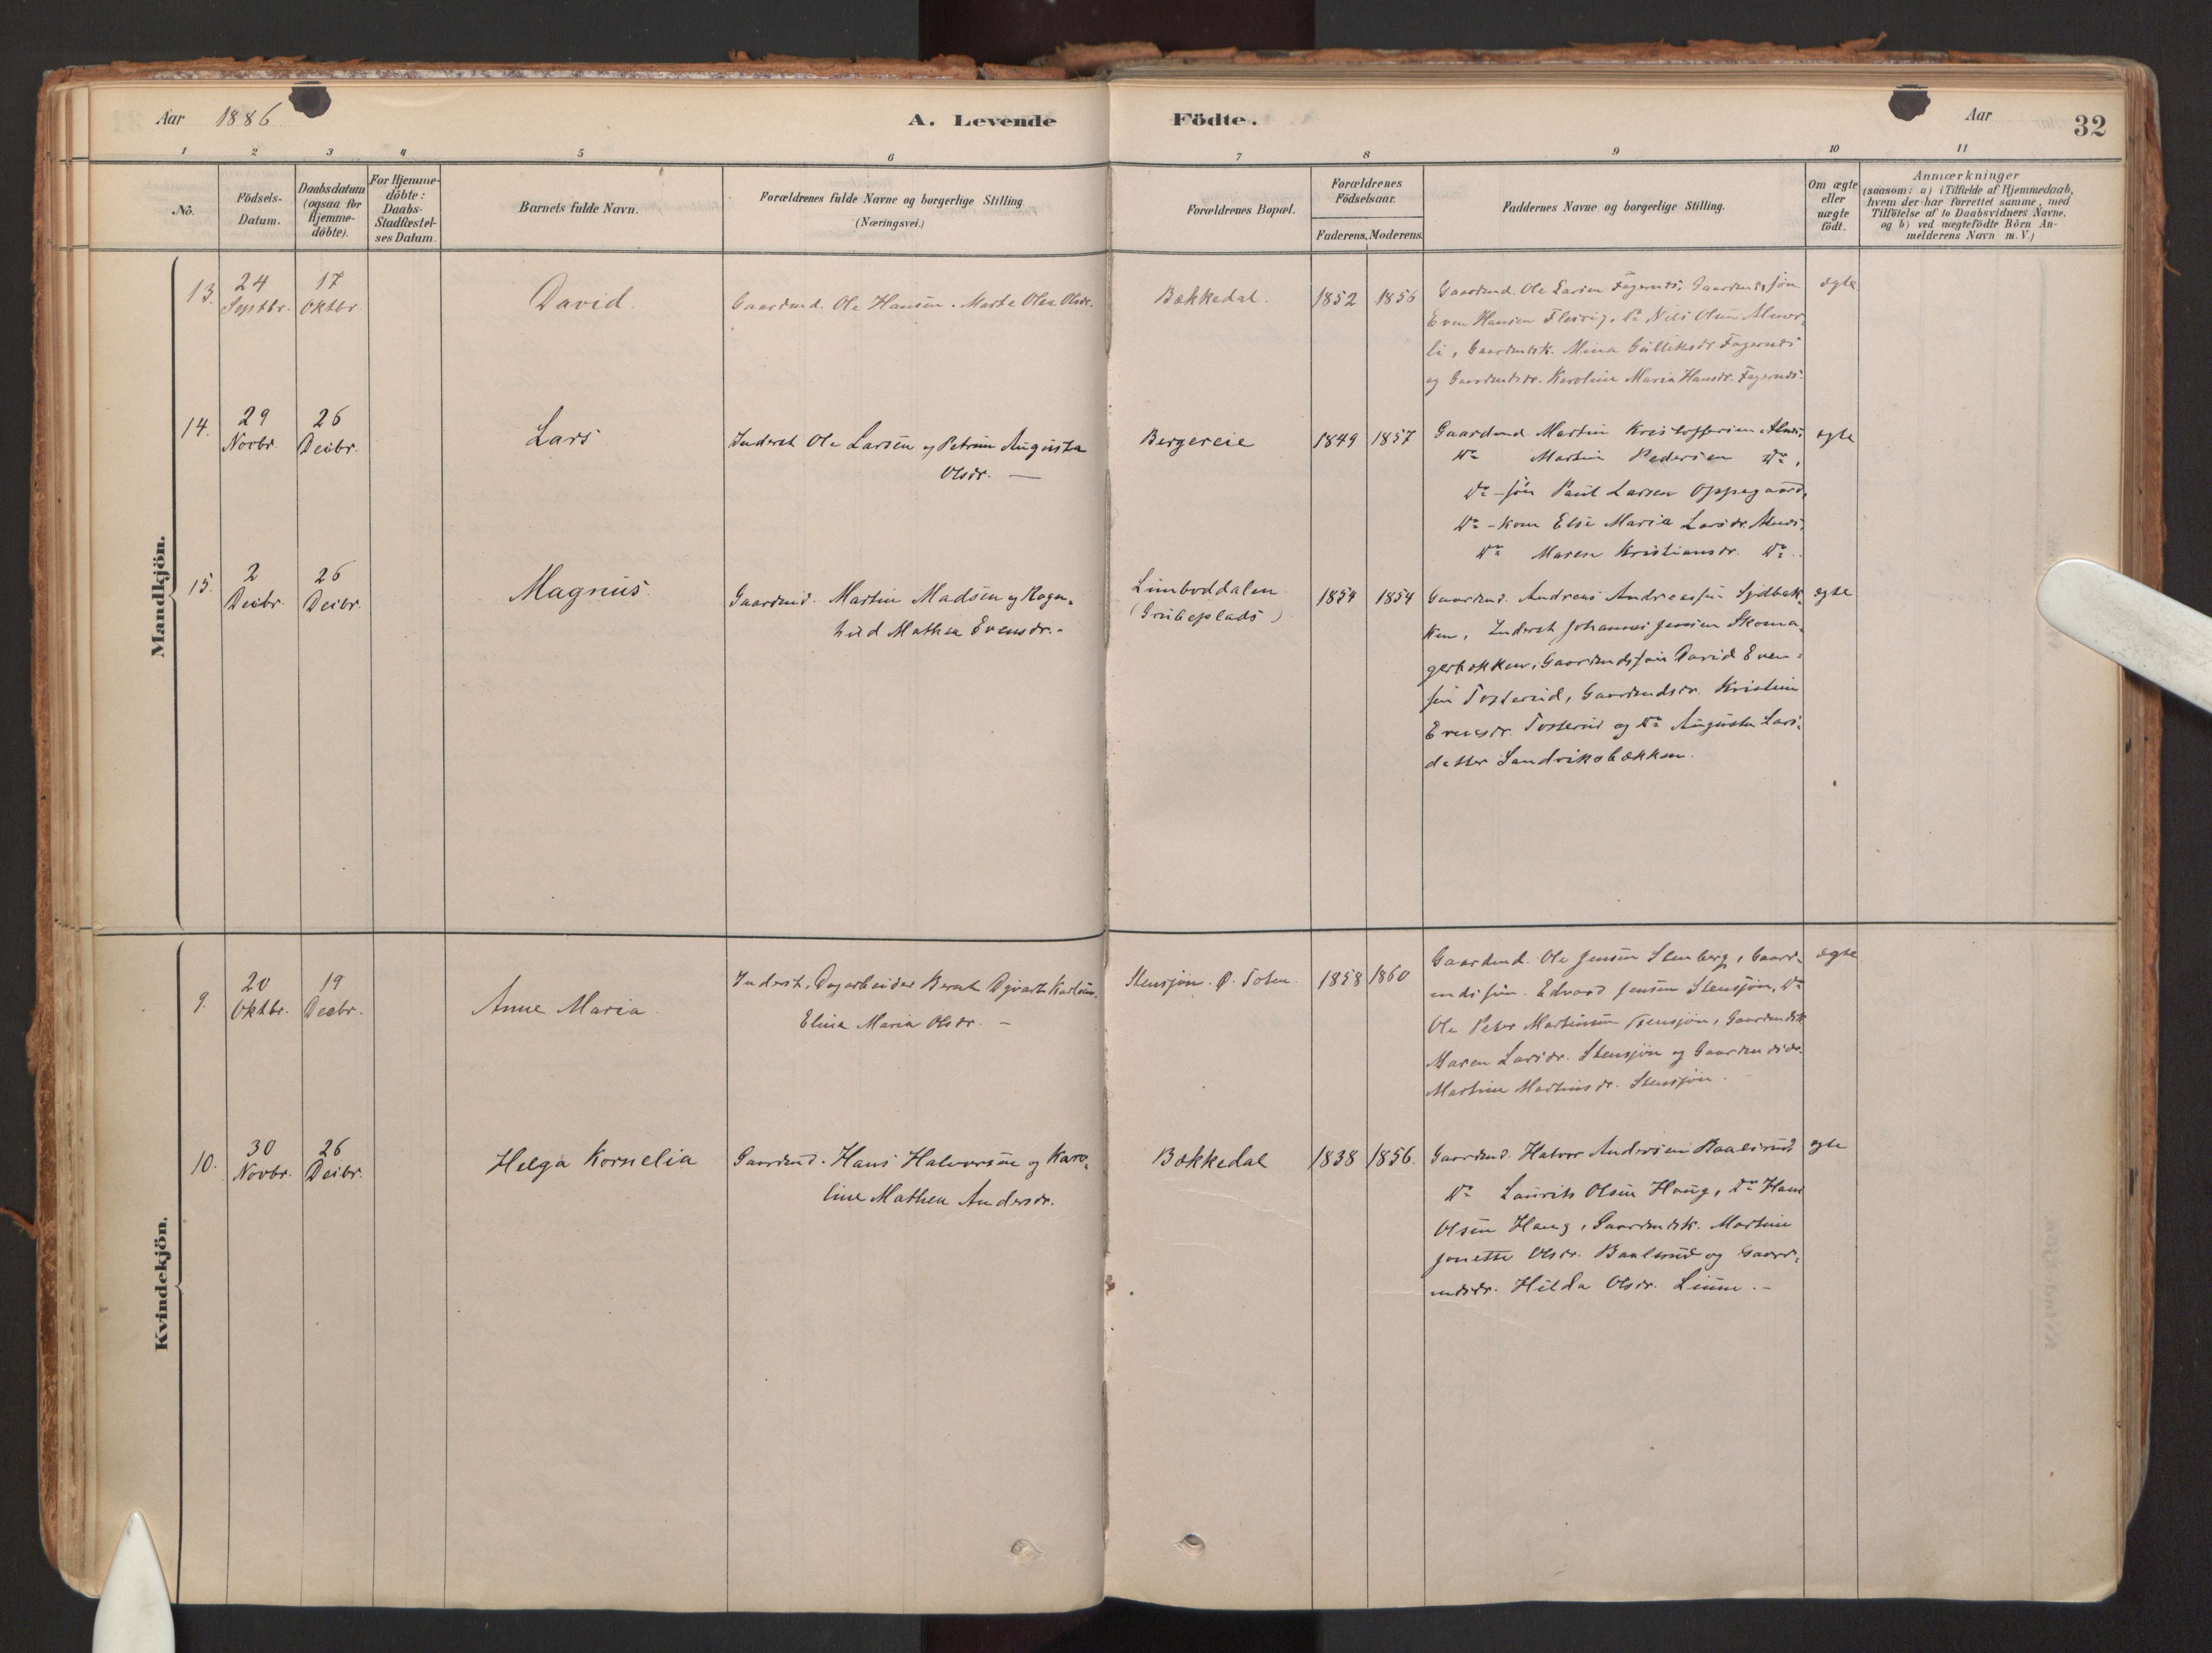 Aar 1886
A. Levende Födte.
Aar
32
1 2 3 4 5 6 7 8 9 10 11
No.
Födsels-
Datum.
Daabsdatum
(ogsaa for
Hjemme-
döbte).
For Hjemme-
döbte:
Daabs-
Stadfæstel-
ses Datum.
Barnets fulde Navn.
Forældrenes fulde Navne og borgerlige Stilling
(Næringsvei.)
Forældrenes Bopæl.
Forældrenes
Födselsaar.
Faderens. Moderens.
Faddernes Navne og borgerlige Stilling.
Om ægte
eller
uægte
födt.
Anmærkninger
(saasom: a) i Tilfælde af Hjemmedaab,
hvem der har forrettet samme, med
Tilföielse af to Daabsvidners Navne,
og b) ved uægtefödte Börn An-
melderens Navn m. V.)
Mandkjön.
13.
24
Septbr.
17
Oktbr
David.
Gaardmd. Ole Hansen. Marte Olea Olsdr.
Bækkedal.
1852 1856
Gaardmd. Ole Larsen Fagernæs, Gaardmdssön
Even Hansen, Nils Olsen
li, Gaardmdsk. Mina Gulliksdr. Fagernæs
og Gaardmdsdr. Karoline Maria Hansdr. Fagernæs.
ægte
14.
29
Novbr.
26
Decbr.
Lars
Inderst Ole Larsen og Petrine Augusta
Olsdr. —
Bergereie
1849 1857
Gaardmd. Martin Kristoffersen Alnæs,
Do Martin Pedersen Do,
Do - sön Paul Larsen Oppegaard,
Do - kone Else Maria Larsdr. Alnæs,
Do Maren Kristiansdr. Do.
ægte
15.
2
Decbr.
26
Decbr.
Magnus.
Gaardmd. Martin Madsen og Ragn-
hild Mathea Evensdr. -
Limboddalen
(Grubeplads)
1854 1854
Gaardmd. Andreas Andreassen Sydbak-
ken, Inderst Johannes Jensen Skoma-
gerbakken, Gaardmdssön David Even-
sen Tosterud, Gaardmdsdr. Kristine
Evensdr. Tosterud og Do Augusta Lars-
datter Sandviksbækken.
ægte
Kvindekjön.
9.
20
Oktbr.
19
Decbr.
Anne Maria
Inderst, Dagarbeider Bernt Karlsen.
Elise Maria Olsdr. -
Stensjön. Ø. Toten.
1858 1860
Gaardmd. Ole Jensen Stenberg, Gaard-
mdssön. Edvard Jensen Stensjön, Do
Ole Peter Martinsen Stensjön, Gaardmdsk.
Maren Larsdr. Stensjön og Gaardmdsdr.
Martine Martinsdr. Stensjön.
ægte
10.
30
Novbr.
26
Decbr.
Helga Kornelia
Gaardmd. Hans Halvorsen og Karo-
line Mathea Andersdr.
Bækkedal
1838 1856.
Gaardmd. Halvor Andersen Baalsrud,
Do Laurits Olsen Haug, Do Hans
Olsen Haug, Gaardmdsk. Martine
Jonette Olsdr. Baalsrud og Gaard-
mdsdr. Hilda Olsdr. Linne. -
ægte